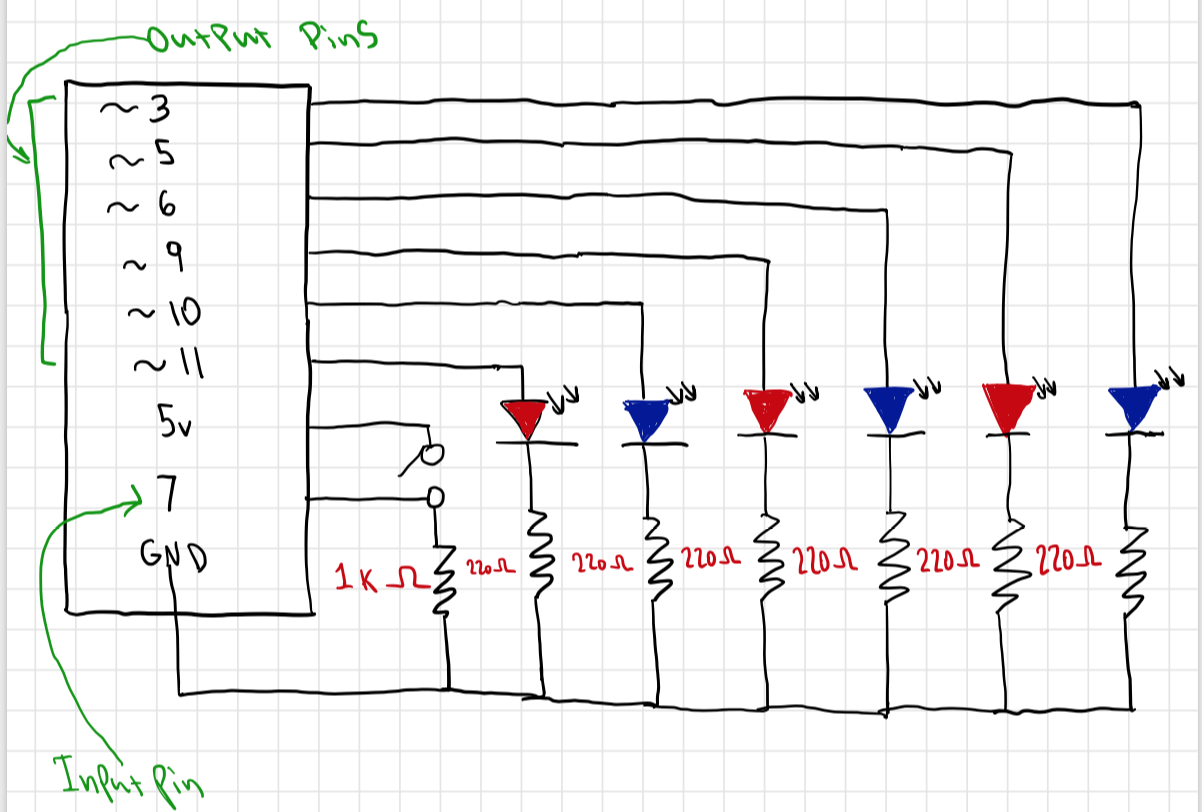 OutPut Pins
~ 3
~ 5
~ 6
~ 9
~ 10
~ 11
5v
7
GND
1K Ω
220Ω
220Ω
220Ω
220Ω
220Ω
220Ω
InPut Pin